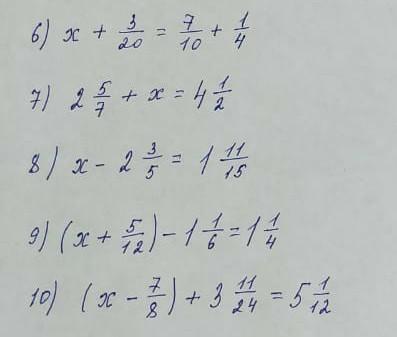 6) x + 3/20 = 7/10 + 1/4
7) 2 5/7 + x = 4 1/2
8) x - 2 3/5 = 1 11/15
9) (x + 5/12) - 1 1/6 = 1 1/4
10) (x - 7/8) + 3 11/24 = 5 1/12